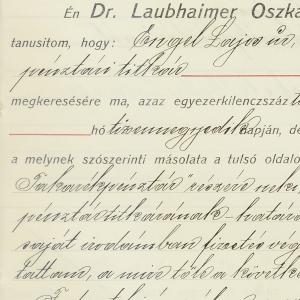 Én Dr. Laubhaimer Oszka
tanusitom, hogy: Engel Lajos úr,
pénztári titkár
megkeresésére ma, azaz egyezerkilenczszáz
hó tizennegyedik napján, de
a melynek szószerinti másolata a tulsó oldalo
Takarékpénztár" részére
pénztártitkárának - határ
saját irodámban fizetés vég
tattam, a mire tőle a követke